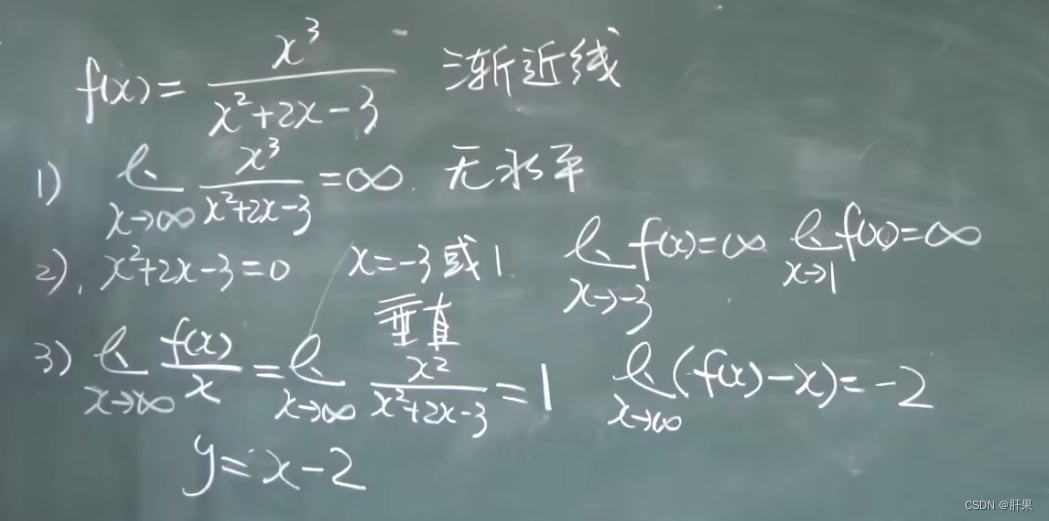 f(x) = x³/(x²+2x-3) 渐近线
1) lim x→∞ x³/(x²+2x-3) = ∞. 无水平
2). x²+2x-3=0 x=-3或1. lim x→-3 f(x)=∞ lim x→1 f(x)=∞
垂直
3) lim x→∞ f(x)/x = lim x→∞ x²/(x²+2x-3) = 1 lim x→∞ (f(x)-x)=-2
y=x-2
CSDN @肝果